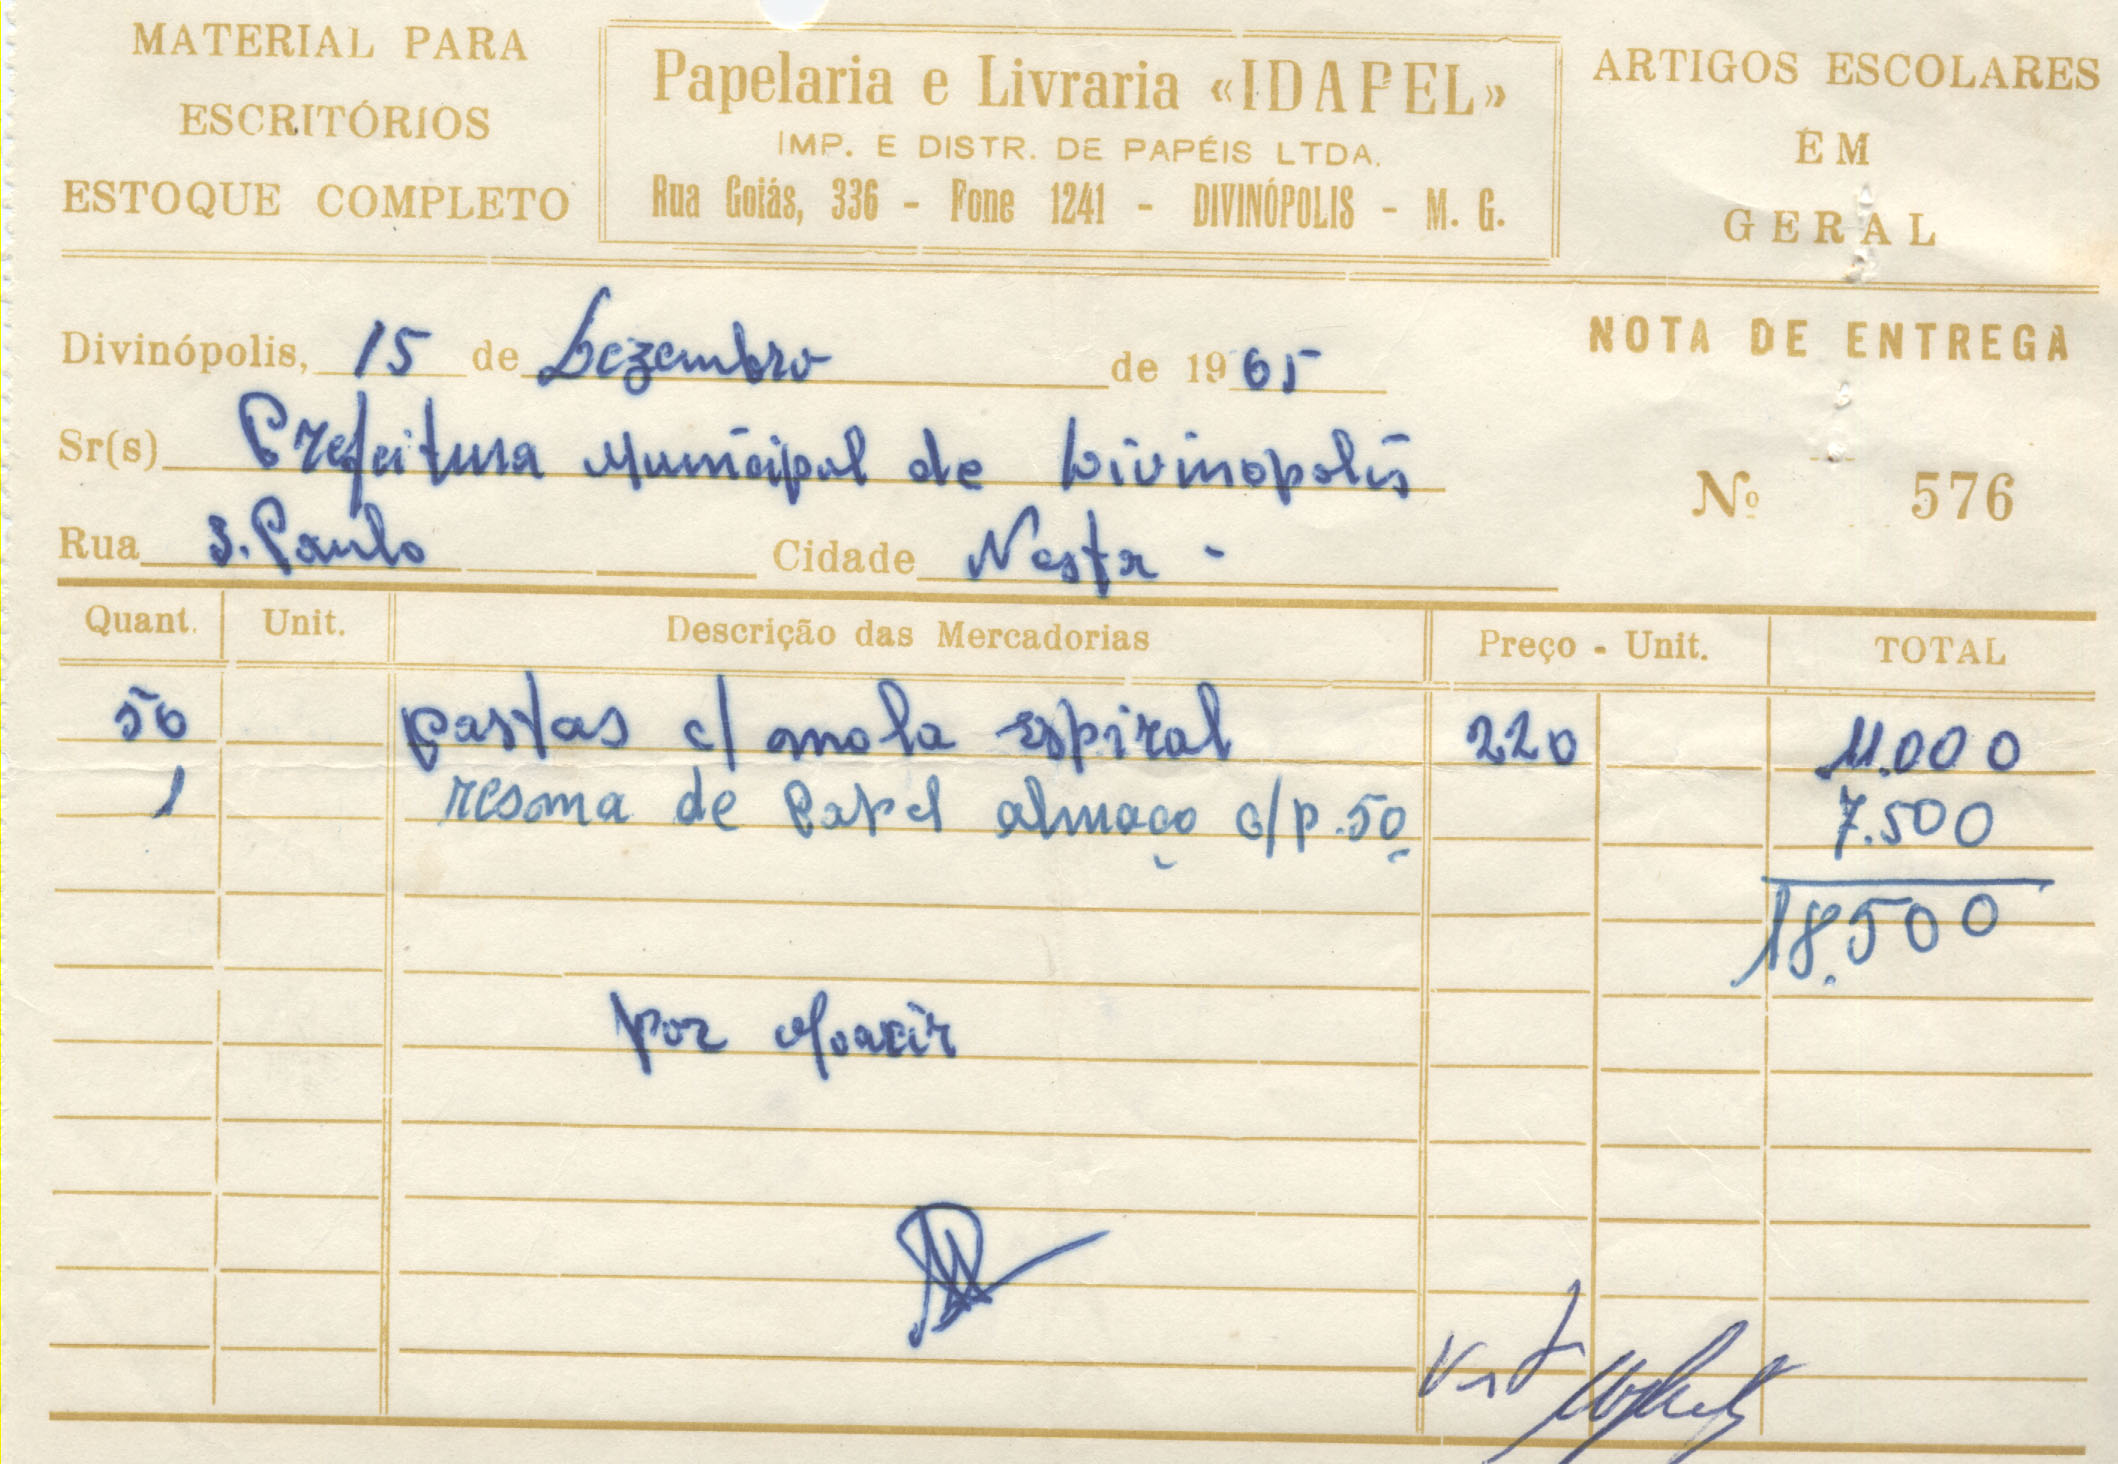 MATERIAL PARA
ESCRITÓRIOS
ESTOQUE COMPLETO
Papelaria e Livraria «IDAPEL»
IMP. E DISTR. DE PAPÉIS LTDA.
Rua Goiás, 336 - Fone 1241 - DIVINÓPOLIS - M. G.
ARTIGOS ESCOLARES
EM
GERAL
Divinópolis, 15 de Dezembro de 1965
NOTA DE ENTREGA
Sr(s) Prefeitura Municipal de Divinopolis
Nº 576
Rua S. Paulo Cidade Nesta -
Quant. Unit. Descrição das Mercadorias Preço - Unit. TOTAL
50 pastas c/ mola espiral 220 11.000
1 resma de Papel almaço c/p. 50 7.500
18.500
por Moacir